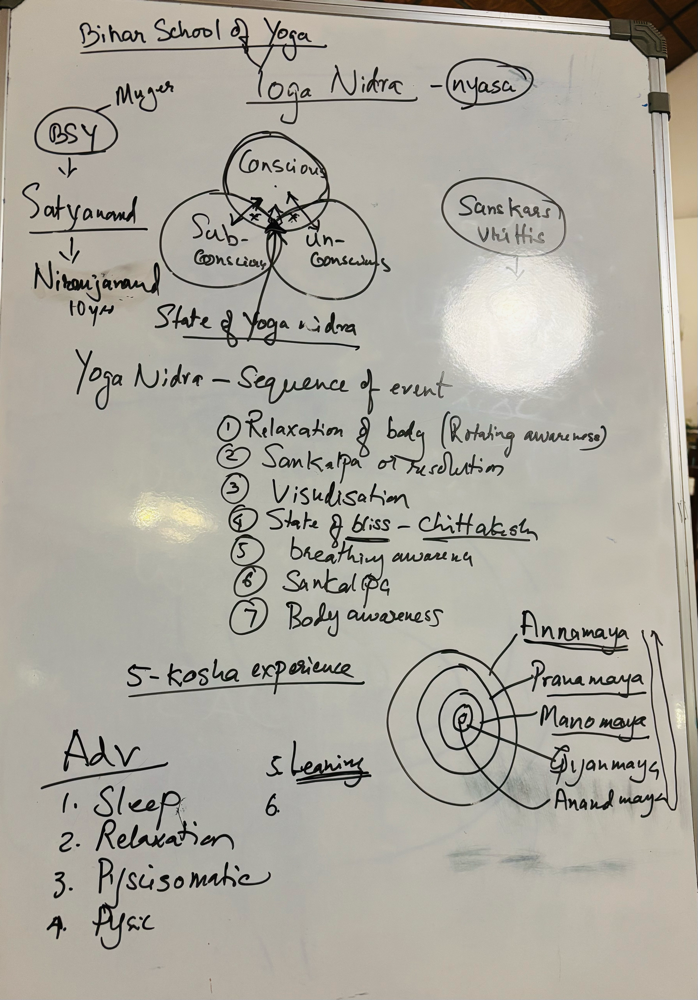 Bihar School of Yoga
Yoga Nidra - nyasa
Muger
BSY
Satyanand
Niranjanand
10 yr
Conscious
Sub-
Conscious
un-
Conscious
State of Yoga nidra
Sanskars
Vrittis
Yoga Nidra - Sequence of event
1 Relaxation of body (Rotating awareness)
2 Sankalpa or resolution
3 Visudisation
4 State of bliss - Chittakash
5 breathing awareness
6 Sankalpa
7 Body awareness
5-kosha experience
Annamaya
Pranamaya
Manomaya
Gyanmaya
Anandmaya
Adv
1. Sleep
2. Relaxation
3. Pyscisomatic
4. Pysic
5. Leaning
6.